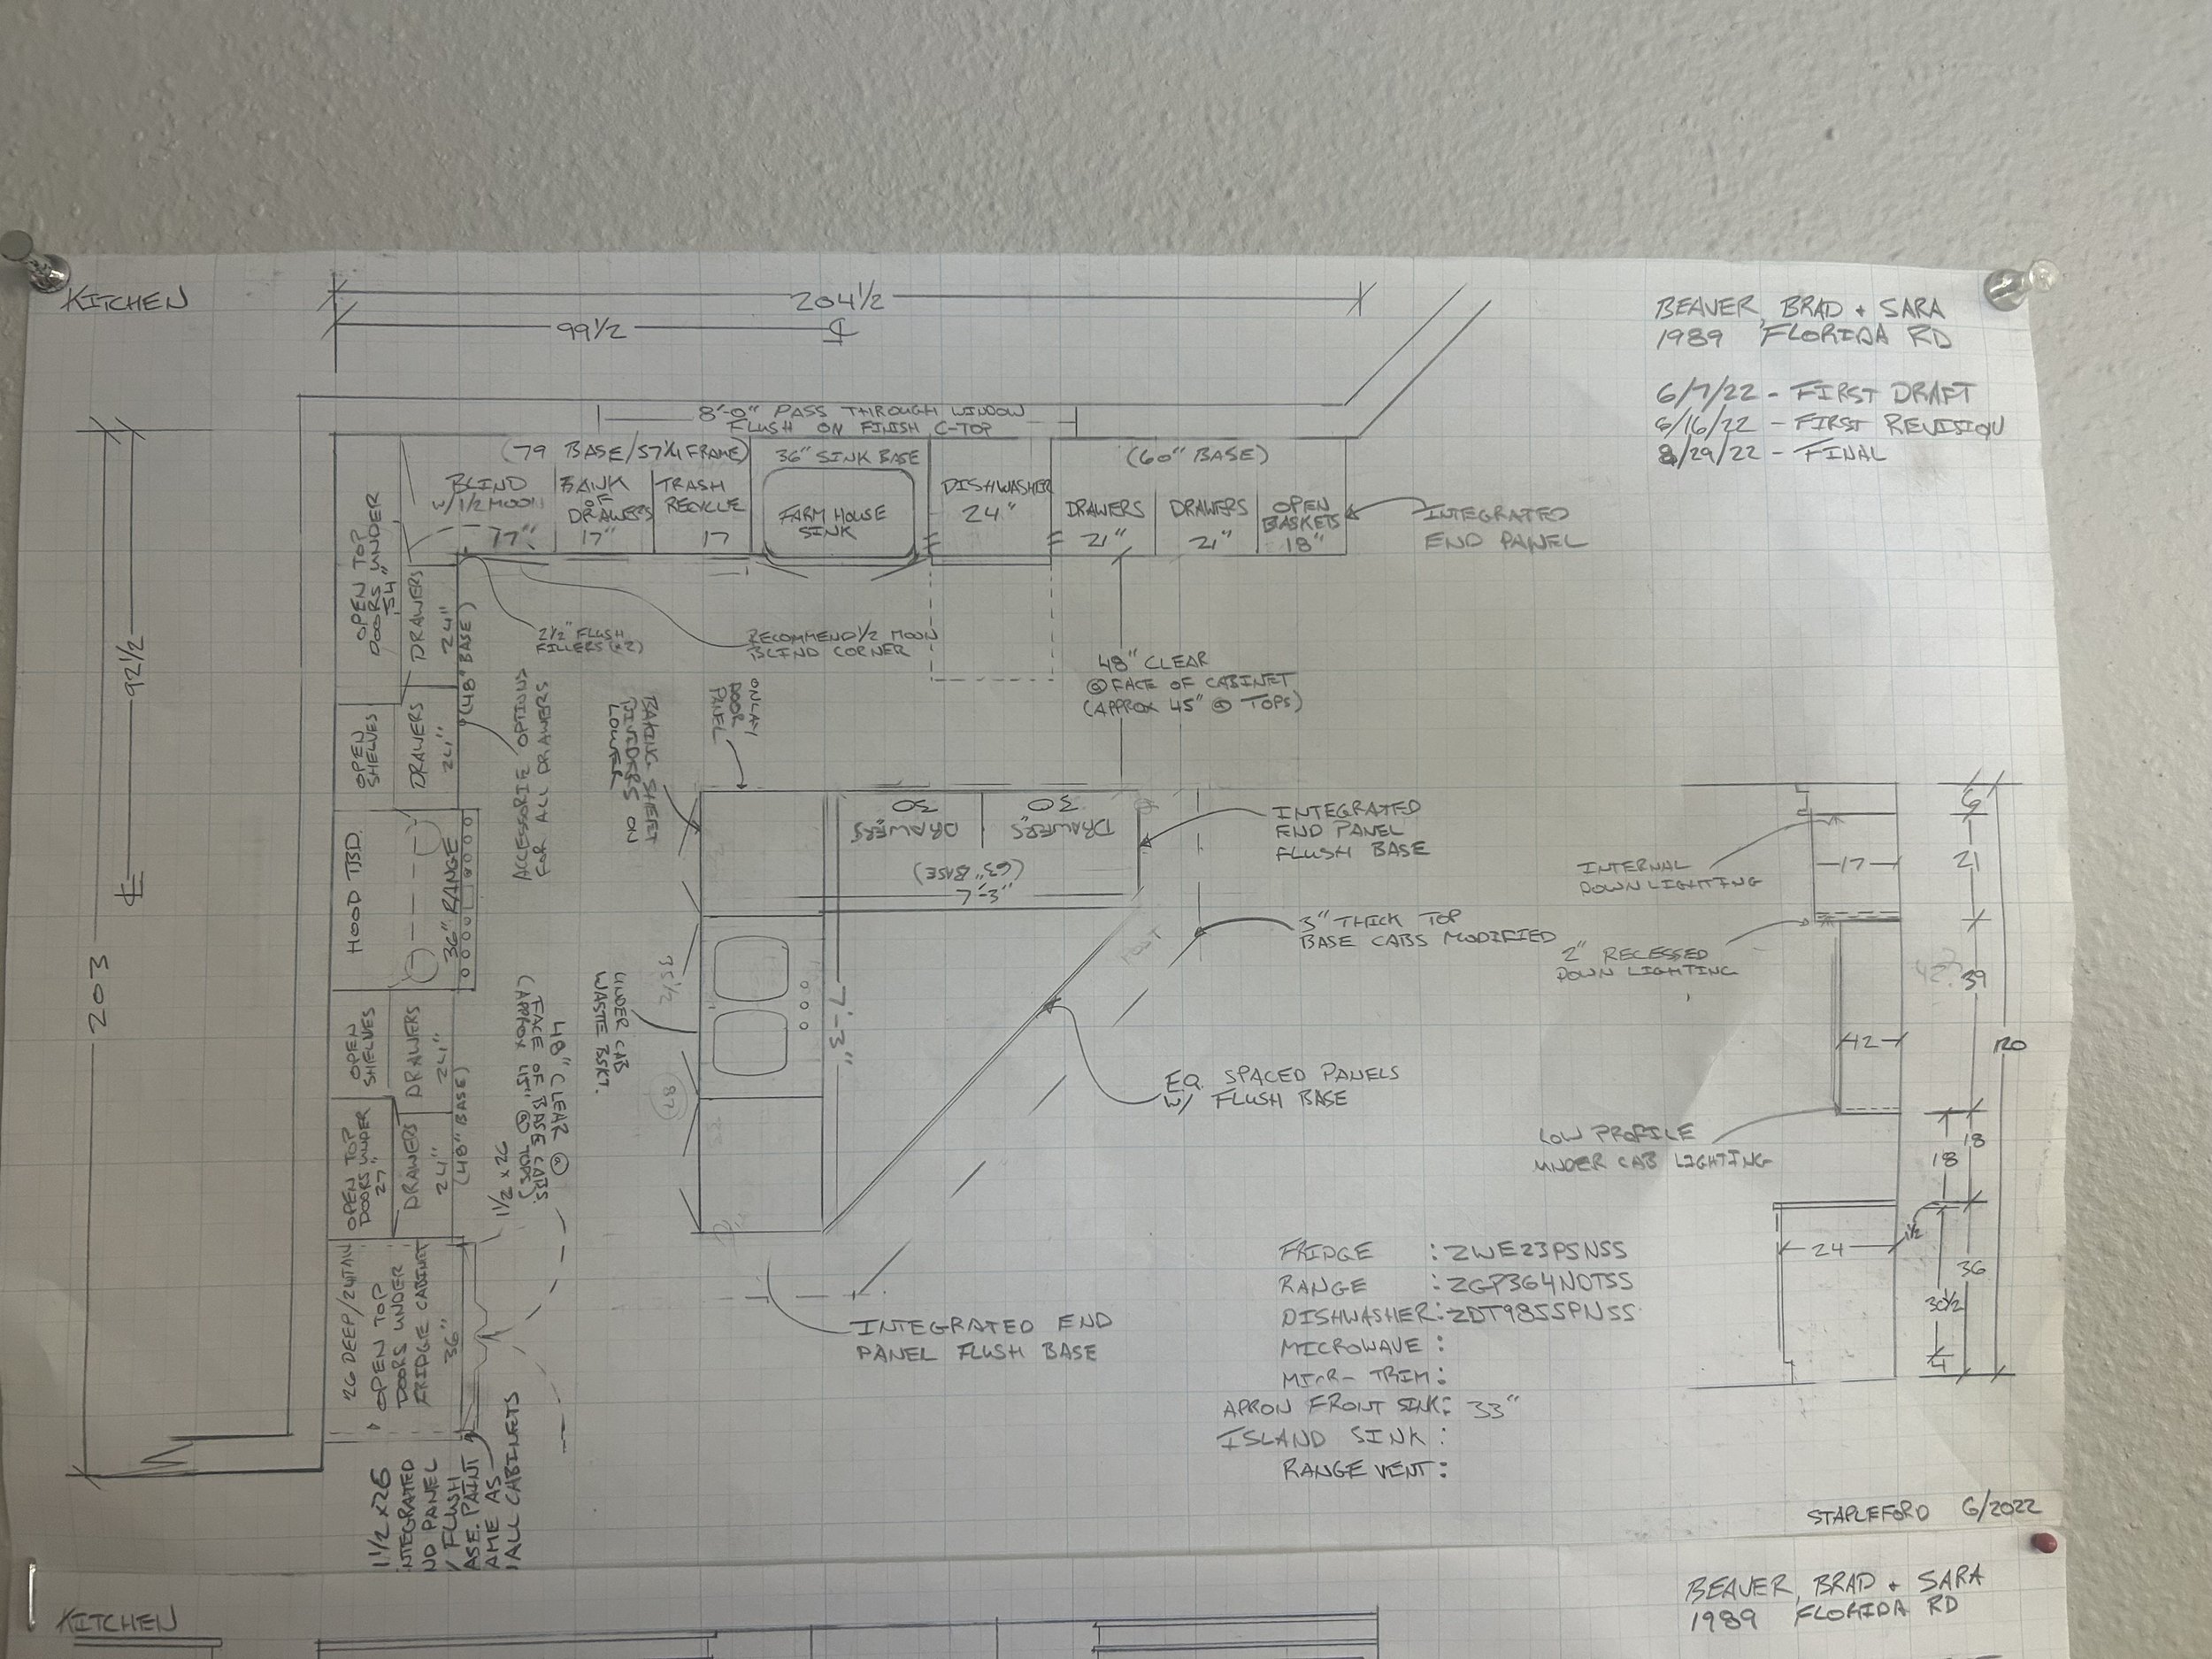 KITCHEN
204 1/2
99 1/2
BEAVER, BRAD + SARA
1989 FLORIDA RD
6/7/22 - FIRST DRAFT
6/16/22 - FIRST REVISION
8/29/22 - FINAL
8'-0" PASS THROUGH WINDOW
FLUSH ON FINISH C-TOP
(79 BASE/57 1/4 FRAME)
BLIND
W/ 1/2 MOON
17"
BANK
OF
DRAWERS
17"
TRASH
RECYCLE
17
36" SINK BASE
FARM HOUSE
SINK
DISHWASHER
24"
(60" BASE)
DRAWERS
21"
DRAWERS
21"
OPEN
BASKETS
18"
INTEGRATED
END PANEL
92 1/2
203
OPEN TOP
DOORS UNDER
54"
DRAWERS
24"
(48" BASE)
OPEN
SHELVES
DRAWERS
24"
HOOD TBD.
36" RANGE
OPEN
SHELVES
DRAWERS
24"
OPEN TOP
DOORS UNDER
27"
DRAWERS
24"
(48" BASE)
26 DEEP/24 TALL
OPEN TOP
DOORS UNDER
FRIDGE CABINET
36"
2 1/2" FLUSH
FILLERS (x2)
RECOMMEND 1/2 MOON
BLIND CORNER
ACCESSORIE OPTIONS
FOR ALL DRAWERS
BAKING SHEET
DIVIDERS ON
LOWER
ONLAY
DOOR
PANEL
48" CLEAR
@ FACE OF CABINET
(APPROX 45" @ TOPS)
DRAWERS
30
DRAWERS
30
(63" BASE)
7'-3"
INTEGRATED
END PANEL
FLUSH BASE
3" THICK TOP
BASE CABS MODIFIED
UNDER CAB
WASTE BSKT.
75 1/2
87
7'-3"
48" CLEAR @
FACE OF BASE CABS.
(APPROX 45" @ TOPS)
1 1/2 x 26
EQ. SPACED PANELS
W/ FLUSH BASE
INTEGRATED END
PANEL FLUSH BASE
1 1/2 x 26
NTEGRATED
ND PANEL
/ FLUSH
ASE. PAINT
AME AS
ALL CABINETS
INTERNAL
DOWN LIGHTING
2" RECESSED
DOWN LIGHTING
LOW PROFILE
UNDER CAB LIGHTING
6
17
21
39
42
120
18
18
24
1 1/2
36
30 1/2
4
FRIDGE : ZWE23PSNSS
RANGE : ZGP364NDTSS
DISHWASHER: ZDT985SPNSS
MICROWAVE :
MICR- TRIM :
APRON FRONT SINK: 33"
ISLAND SINK :
RANGE VENT :
STAPLEFORD 6/2022
KITCHEN
BEAVER, BRAD + SARA
1989 FLORIDA RD